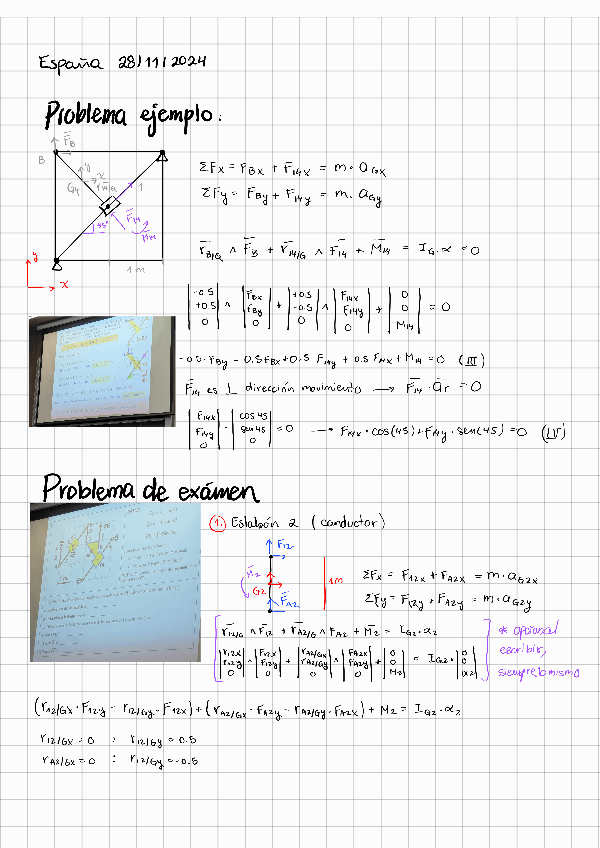 España 28/11/2024
Problema ejemplo:
F̄_B
B
y
x
G4
1
45°
F̄14
M̄14
1 m
y
x
ΣFx = F_Bx + F̄14x = m · a_Gx
ΣFy = F_By + F̄14y = m · a_Gy
r̄_B/G ∧ F̄_B + r̄14/G ∧ F̄14 + M̄14 = I_G · α = 0
|-0.5 +0.5 0| ∧ |F_Bx F_By 0| + |+0.5 -0.5 0| ∧ |F14x F14y 0| + |0 0 M14| = 0
-0.5 · F_By - 0.5 F_Bx + 0.5 F14y + 0.5 F14x + M14 = 0 (III)
F̄14 es ⊥ dirección movimiento → F̄14 · ār = 0
|F14x F14y 0| · |cos 45 sen 45 0| = 0 → F14x · cos(45) + F14y · sen(45) = 0 (IV)
Problema de exámen
1. Eslabón 2 (conductor)
F12
M̄2
G2
F̄A2
1m
ΣFx = F12x + FA2x = m · aG2x
ΣFy = F12y + FA2y = m · aG2y
r̄12/G ∧ F̄12 + r̄A2/G ∧ FA2 + M̄2 = IG2 · α2
|r12x r12y 0| ∧ |F12x F12y 0| + |rA2/Gx rA2/Gy 0| ∧ |FA2x FA2y 0| + |0 0 M2| = IG2 · |0 0 α2|
* opcional
escribir,
siempre lo mismo
(r12/Gx · F12y - r12/Gy · F12x) + (rA2/Gx · FA2y - rA2/Gy · FA2x) + M2 = IG2 · α2
r12/Gx = 0 : r12/Gy = 0.5
rA2/Gx = 0 : r12/Gy = -0.5